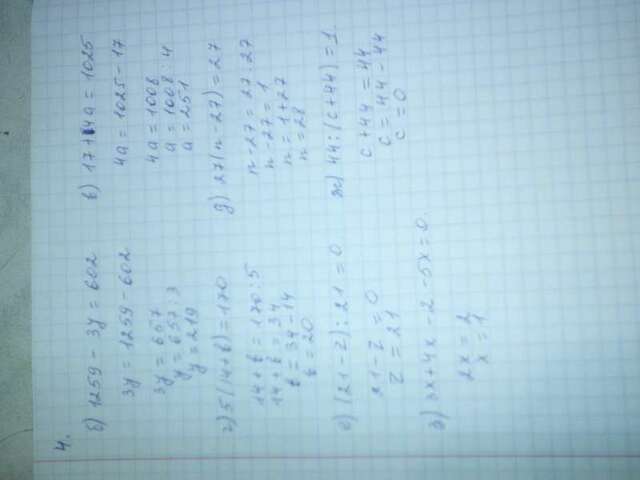 4.
б) 1259 - 3y = 602
3y = 1259 - 602
3y = 657
y = 657 : 3
y = 219
в) 17 + 4a = 1025
4a = 1025 - 17
4a = 1008
a = 1008 : 4
a = 251
г) 5(14 + b) = 170
14 + b = 170 : 5
14 + b = 34
b = 34 - 14
b = 20
д) 27(n - 27) = 27
n - 27 = 27 : 27
n - 27 = 1
n = 1 + 27
n = 28
е) (21 - z) : 21 = 0
21 - z = 0
z = 21
ж) 44 : (c + 44) = 1.
c + 44 = 44
c = 44 - 44
c = 0
з) 3x + 4x - 2 - 5x = 0.
2x = 2
x = 1